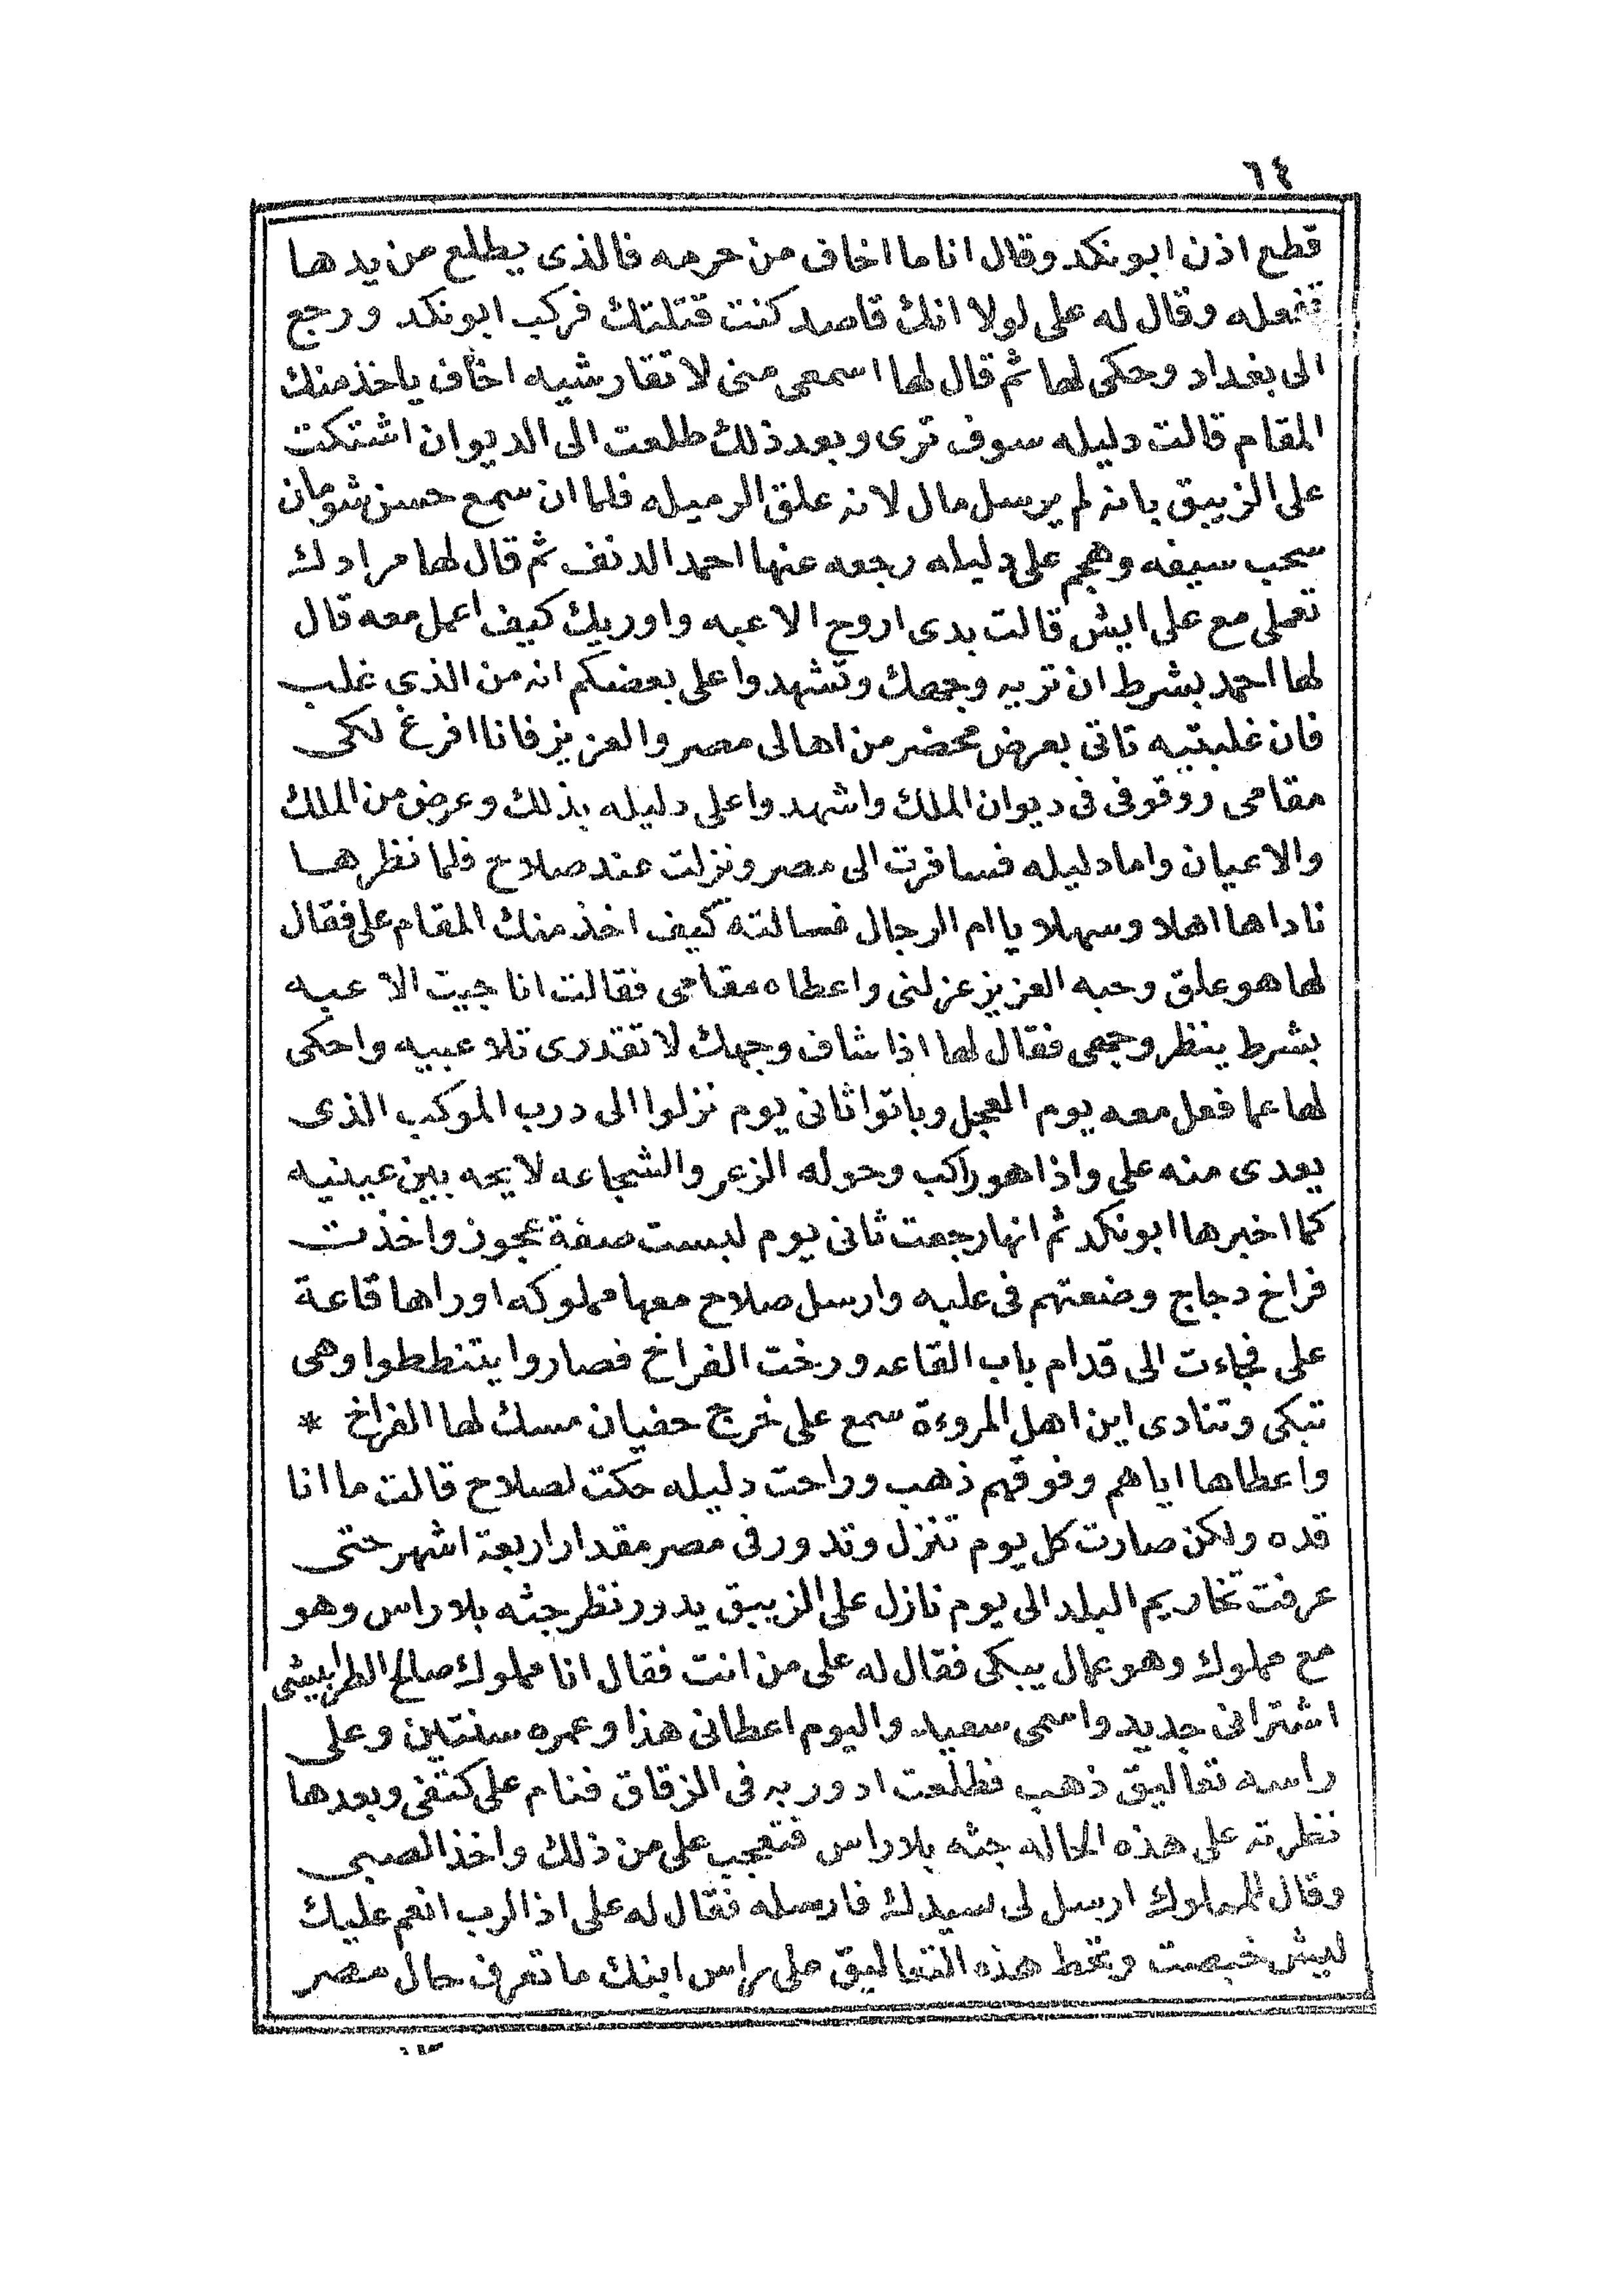 ٦٤
قطع اذن ابو نكد وقال انا ما اخاف من حرمه فالذى يطلع من يدها
تفعله وقال له على لولا انك قاصد كنت قتلتك فركب ابونكد ورجع
الى بغداد وحكى لها ثم قال لها اسمعى منى لا تقارشيه اخاف ياخذ منك
المقام قالت دليله سوف ترى وبعد ذلك طلعت الى الديوان اشتكت
على الزيبق بانه لم يرسل مال لانه علق الرميله فلما ان سمع حسن شومان
سحب سيفه وهجم على دليله رجعه عنها احمد الدنف ثم قال لها مرادك
تعملى مع على ايش قالت بدى اروح الاعبه واوريك كيف اعمل معه قال
لها احمد بشرط ان تريه وجهك وتشهدوا على بعضكم انه من الذى غلب
فان غلبتيه تاتى بعرض محضر من اهالى مصر والعزيز فانا افرغ لكى
مقامى ووقوفى فى ديوان الملك واشهدوا على دليله بذلك وعرض من الملك
والاعيان واما دليله فسافرت الى مصر ونزلت عند صلاح فلما نظرها
ناداها اهلا وسهلا يا ام الرجال فسالته كيف اخذ منك المقام على فقال
لها هو علق وحبه العزيز عزلنى واعطاه مقامى فقالت انا جيت الاعبه
بشرط ينظر وجهى فقال لها اذا شاف وجهك لا تقدرى تلاعبيه واحكى
لها عما فعل معه يوم العجل وباتوا ثانى يوم نزلوا الى درب الموكب الذى
يعدى منه على واذا هو راكب وحوله الزعر والشجاعه لايحه بين عينيه
كما اخبرها ابونكد ثم انها رجعت ثانى يوم لبست صفة عجوز واخذت
فراخ دجاج وضعتهم فى علبه وارسل صلاح معها مملوكه اوراها قاعة
على فجاءت الى قدام باب القاعه ورخت الفراخ فصاروا يتنططوا وهى
تبكى وتنادى اين اهل المروءة سمع على خرج حفيان مسك لها الفراخ *
واعطاها اياهم وفوقهم ذهب وراحت دليله حكت لصلاح قالت ما انا
قده ولكن صارت كل يوم تنزل وتدور فى مصر مقدار اربعة اشهر حتى
عرفت تخاريم البلد الى يوم نازل على الزيبق يدور نظر جثه بلا راس وهو
مع مملوك وهو عمال يبكى فقال له على من انت فقال انا مملوك صالح الطرابيشى
اشترانى جديد واسمى سعيد واليوم اعطانى هذا وعمره سنتين وعلى
راسه تعاليق ذهب فطلعت ادور به فى الزقاق فنام على كتفى وبعدها
نظرته على هذه الحاله جثه بلا راس فتعجب على من ذلك واخذ الصبى
وقال للمملوك ارسل لى سيدك فارسله فقال له على اذا الرب انعم عليك
ليش خبصت وتحط هذه التعاليق على راس ابنك ما تعرف حال مصر